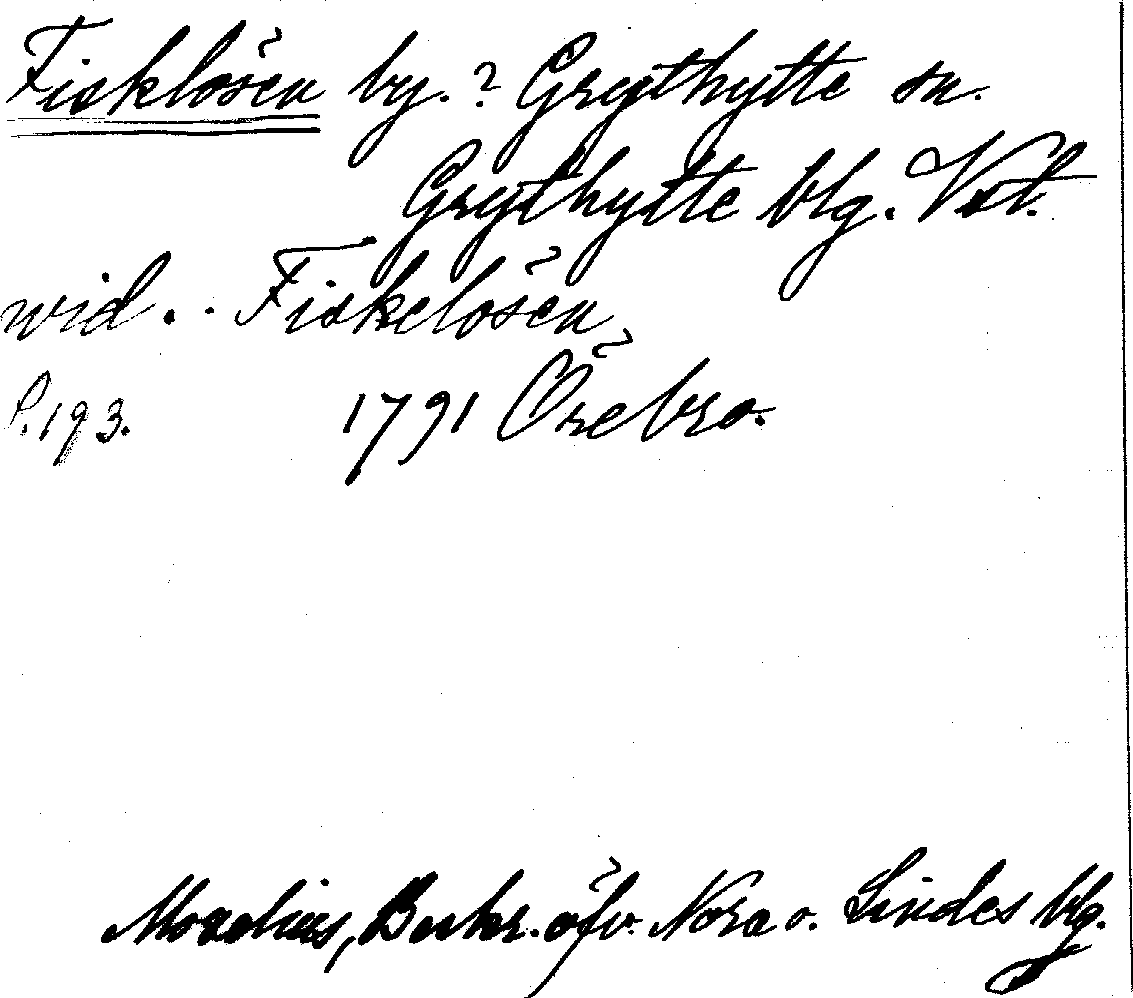 Fisklösen by.? Grythytte sn.
Grythytte blg. Vstl.
wid . . Fiskelösen
P. 193. 1791 Örebro.
Morelius, Beskr. öfv. Nora o. Lindes blg.